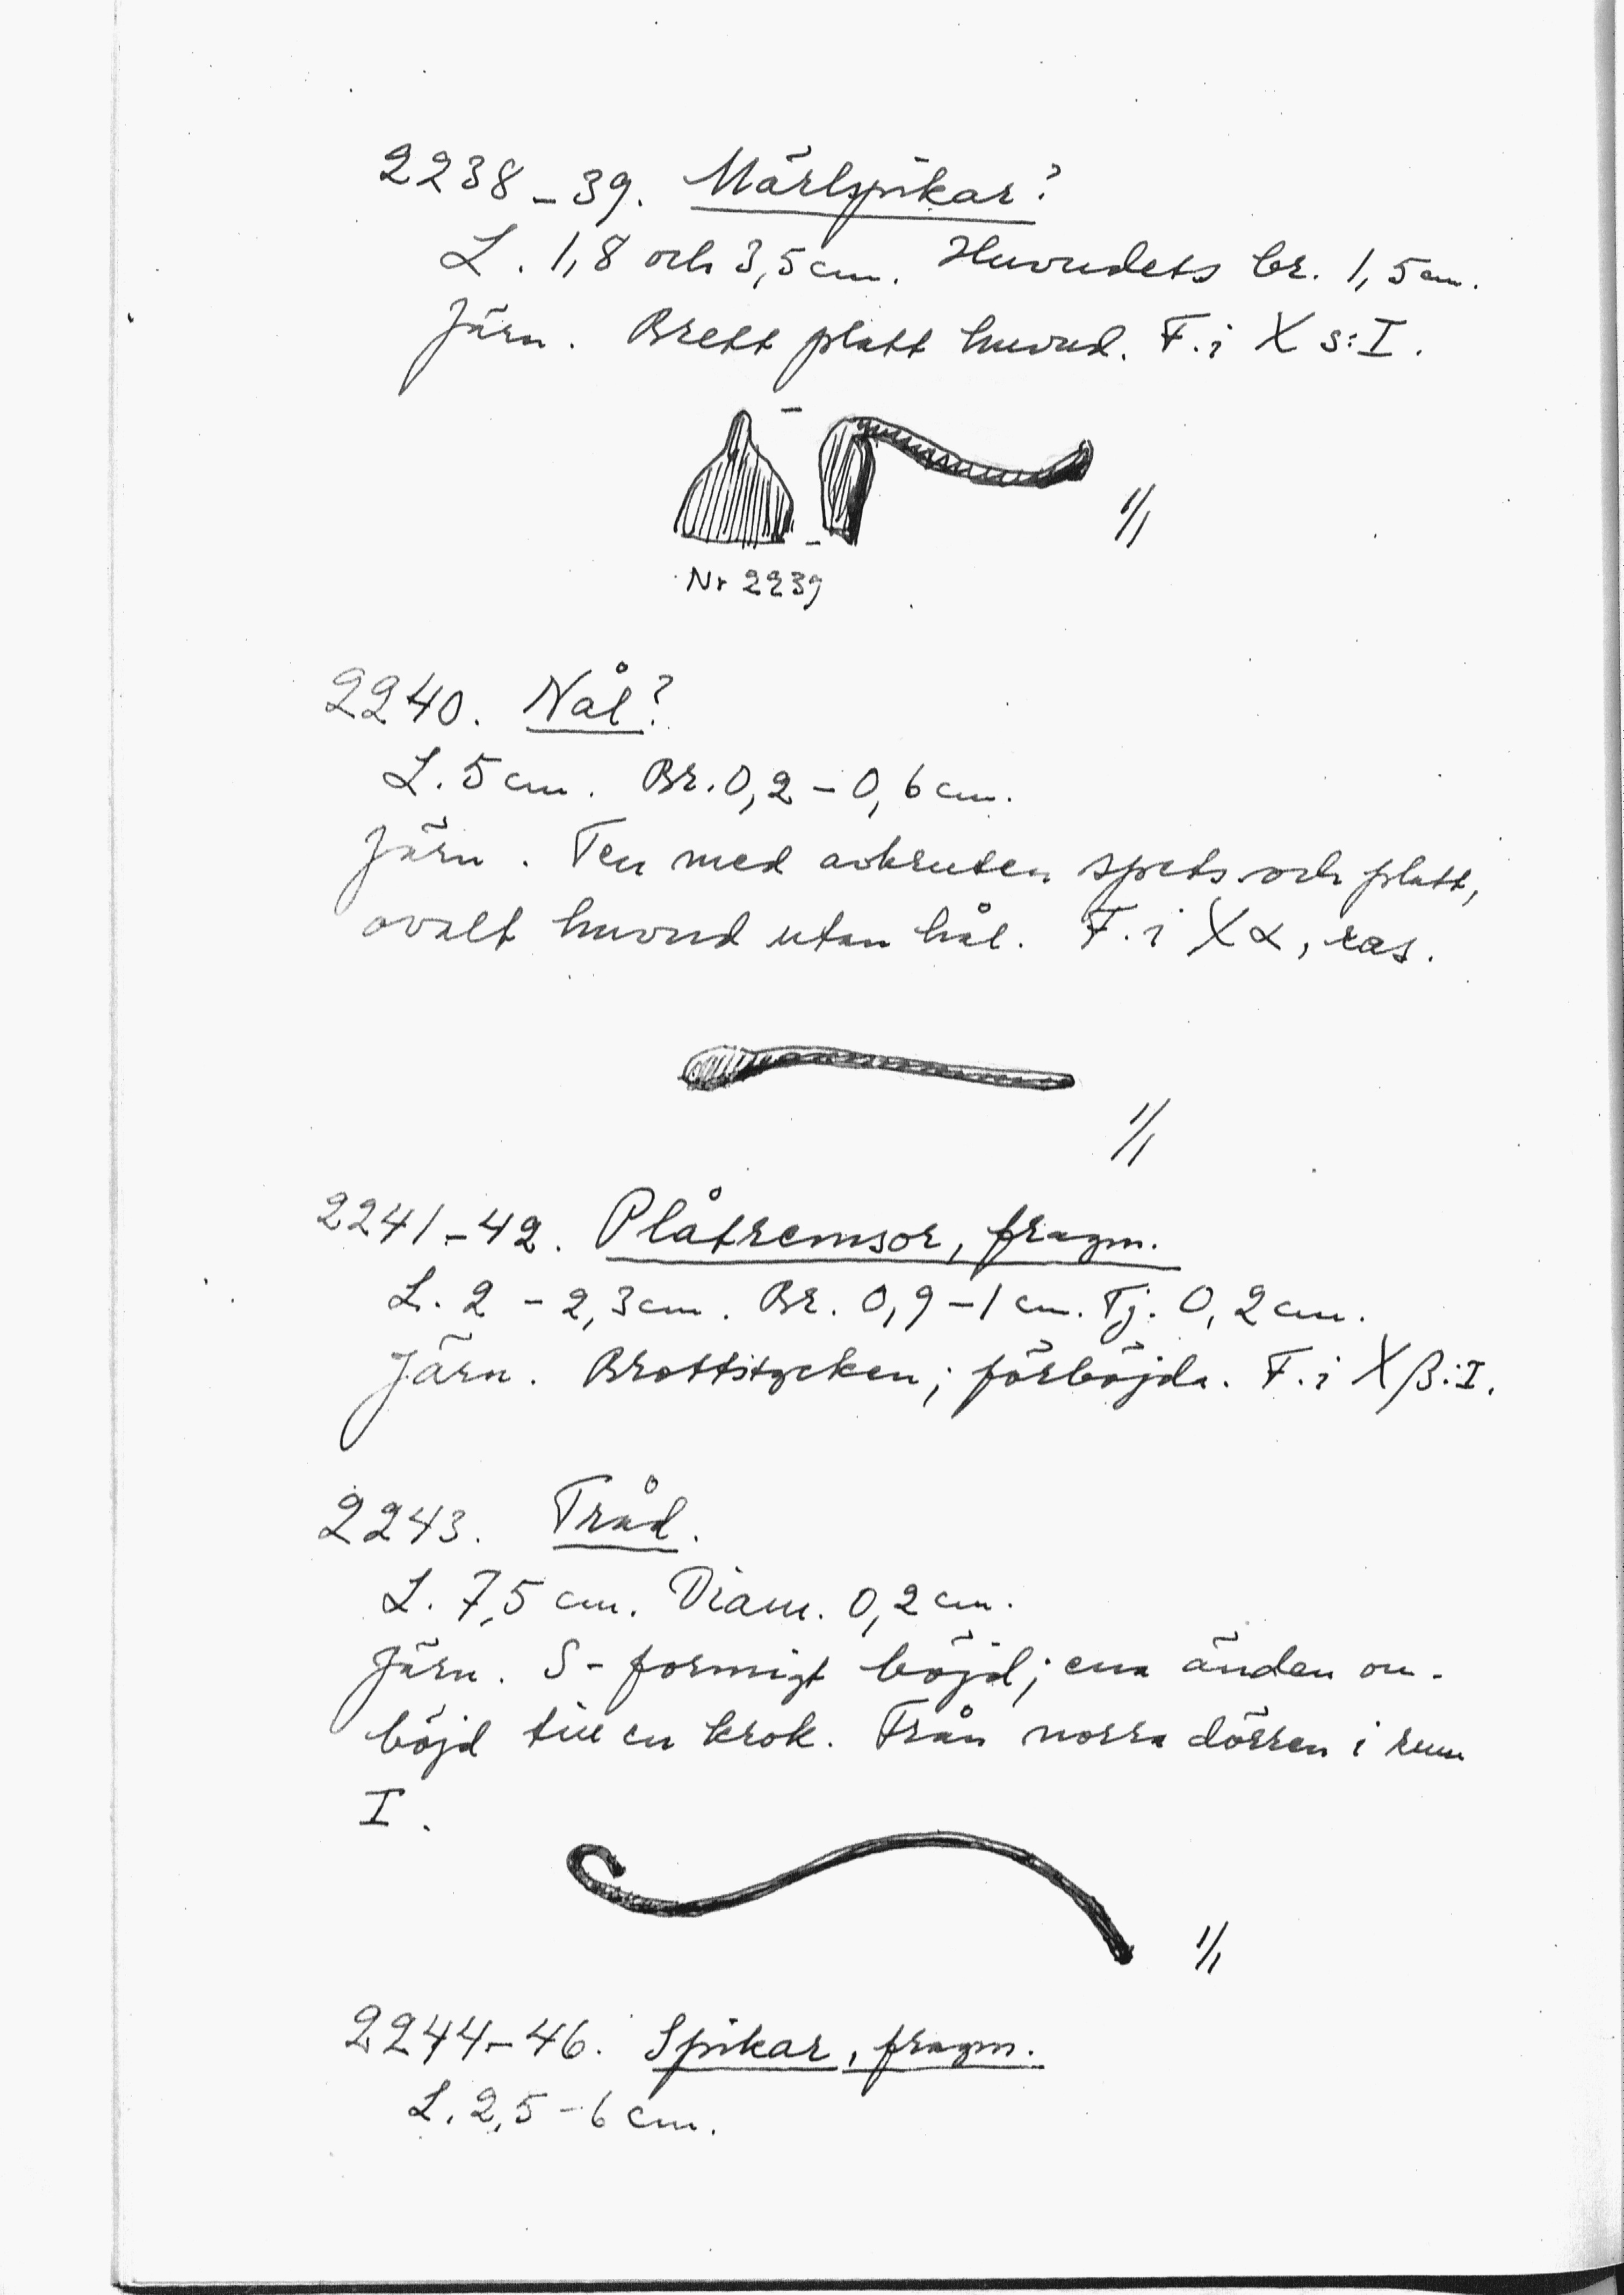 2238-39. Märlspikar?
L. 1,8 och 3,5 cm. Huvudets br. 1,5 cm.
Järn. Brett platt huvud. F. i X s:I.
1/1
Nr 2239
2240. Nål?
L. 5 cm. Br. 0,2 - 0,6 cm.
Järn. Ten med avbruten spets och platt,
ovalt huvud utan hål. F. i X α, ras.
1/1
2241-42. Plåtremsor, fragm.
L. 2 - 2,3 cm. Br. 0,9 - 1 cm. Tj. 0,2 cm.
Järn. Brottstycken; förböjda. F. i X β:I.
2243. Tråd.
L. 7,5 cm. Diam. 0,2 cm.
Järn. S-formigt böjd; ena änden om-
böjd till en krok. Från norra dörren i rum
I.
1/1
2244-46. Spikar, fragm.
L. 2,5 - 6 cm.